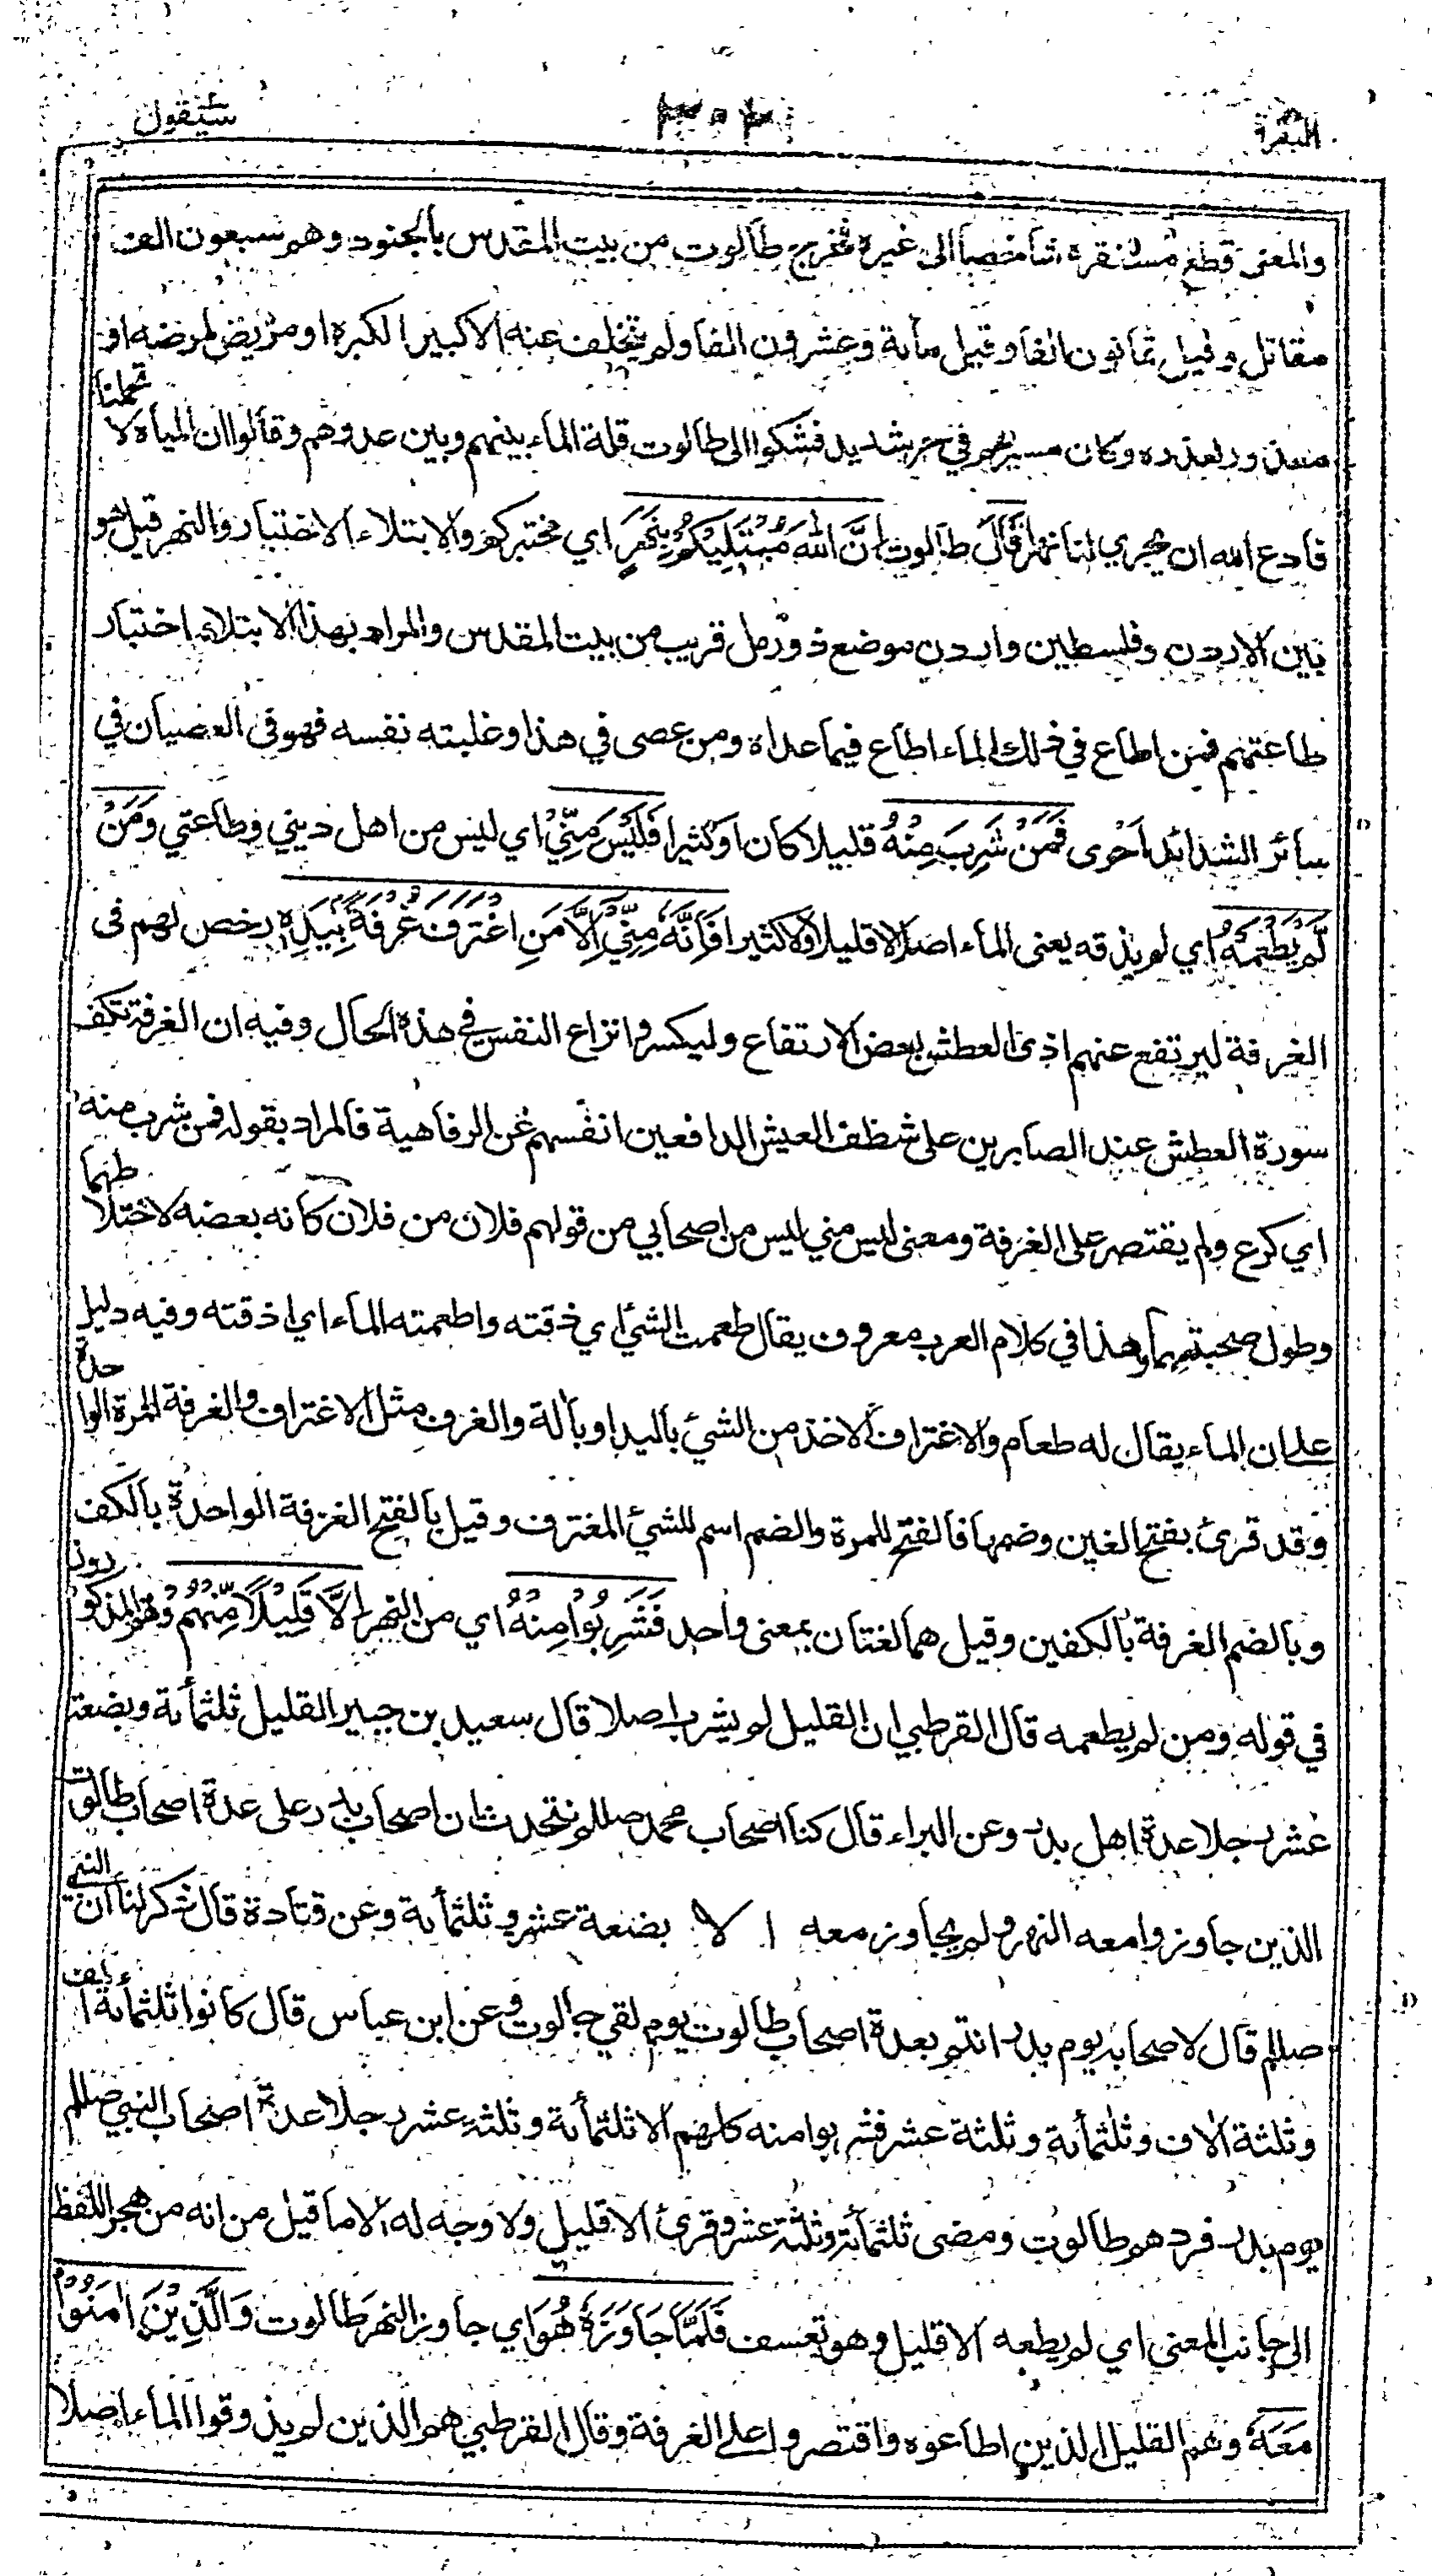 البقرة ٣٠٢ سيقول
والمعنى قطع مستقره شاخصا الى غيره فخرج طالوت من بيت المقدس بالجنود وهم سبعون الف
مقاتل وقيل ثمانون الفا وقيل مائة وعشرون الفا ولم يتخلف عنه الا كبير لكبره او مريض لمرضه او
معذور لعذره وكان مسيرهم في حر شديد فشكوا الى طالوت قلة الماء بينهم وبين عدوهم وقالوا ان المياه لا تحملنا
فادع الله ان يجري لنا نهرا فَقَالَ طالوت اِنَّ اللهَ مُبْتَلِيْكُمْ بِنَهَرٍ اي مختبركم والابتلاء الاختبار والنهر قيل هو
بين الاردن وفلسطين واردن موضع ذو رمل قريب من بيت المقدس والمراد بهذا الابتلاء اختبار
طاعتهم فمن اطاع في ذلك الماء اطاع فيما عداه ومن عصى في هذا وغلبته نفسه فهو فى العصيان في
سائر الشدائد احرى فَمَنْ شَرِبَ مِنْهُ قليلا كان او كثيرا فَلَيْسَ مِنِّيْ اي ليس من اهل ديني وطاعتي وَمَنْ
لَّمْ يَطْعَمْهُ اي لم يذقه يعنى الماء اصلا لا قليلا ولا كثيرا فَاِنَّهٗ مِنِّيْٓ اِلَّا مَنِ اغْتَرَفَ غُرْفَةً بِيَدِهٖ رخص لهم فى
الغرفة ليرتفع عنهم اذى العطش بعض الارتفاع وليكسروا نزاع النفس في هذه الحال وفيه ان الغرفة تكف
سورة العطش عند الصابرين على شظف العيش الدافعين انفسهم عن الرفاهية فالمراد بقوله فمن شرب منه
اي كرع ولم يقتصر على الغرفة ومعنى ليس مني ليس من اصحابي من قولهم فلان من فلان كانه بعضه لاختلاطهما
وطول صحبتهما وهذا في كلام العرب معروف يقال طعمت الشئ اي ذقته واطعمته الماء اي اذقته وفيه دليل
على ان الماء يقال له طعام والاغتراف الاخذ من الشئ باليد او بالة والغرف مثل الاغتراف والغرفة المرة الواحدة
وقد قرئ بفتح الغين وضمها فالفتح للمرة والضم اسم للشئ المغترف وقيل بالفتح الغرفة الواحدة بالكف
وبالضم الغرفة بالكفين وقيل هما لغتان بمعنى واحد فَشَرِبُوْا مِنْهُ اي من النهر اِلَّا قَلِيْلًا مِّنْهُمْ وهم المذكورون
في قوله ومن لم يطعمه قال القرطبي ان القليل لم يشرب اصلا قال سعيد بن جبير القليل ثلثمأئة وبضعة
عشر رجلا عدة اهل بدر وعن البراء قال كنا اصحاب محمد صللم نتحدث ان اصحاب بدر على عدة اصحاب طالوت
الذين جاوزوا معه النهر ولم يجاوز معه الا بضعة عشر وثلثمأئة وعن قتادة قال ذكر لنا ان النبي
صللم قال لاصحابه يوم بدر انتم بعدة اصحاب طالوت يوم لقي جالوت وعن ابن عباس قال كانوا ثلثمأئة الف
وثلثة الاف وثلثمأئة وثلثة عشر فشربوا منه كلهم الا ثلثمأئة وثلثة عشر رجلا عدة اصحاب النبي صللم
يوم بدر فردهم طالوت ومضى ثلثمأئة وثلثة عشر وقرئ الا قليل ولا وجه له الا ما قيل من انه من هجر اللفظ
الى جانب المعنى اي لم يطعه الا قليل وهو تعسف فَلَمَّا جَاوَزَهٗ هُوَ اي جاوز النهر طالوت وَالَّذِيْنَ اٰمَنُوْا
مَعَهٗ وهم القليل الذين اطاعوه واقتصروا على الغرفة وقال القرطبي هم الذين لم يذوقوا الماء اصلا